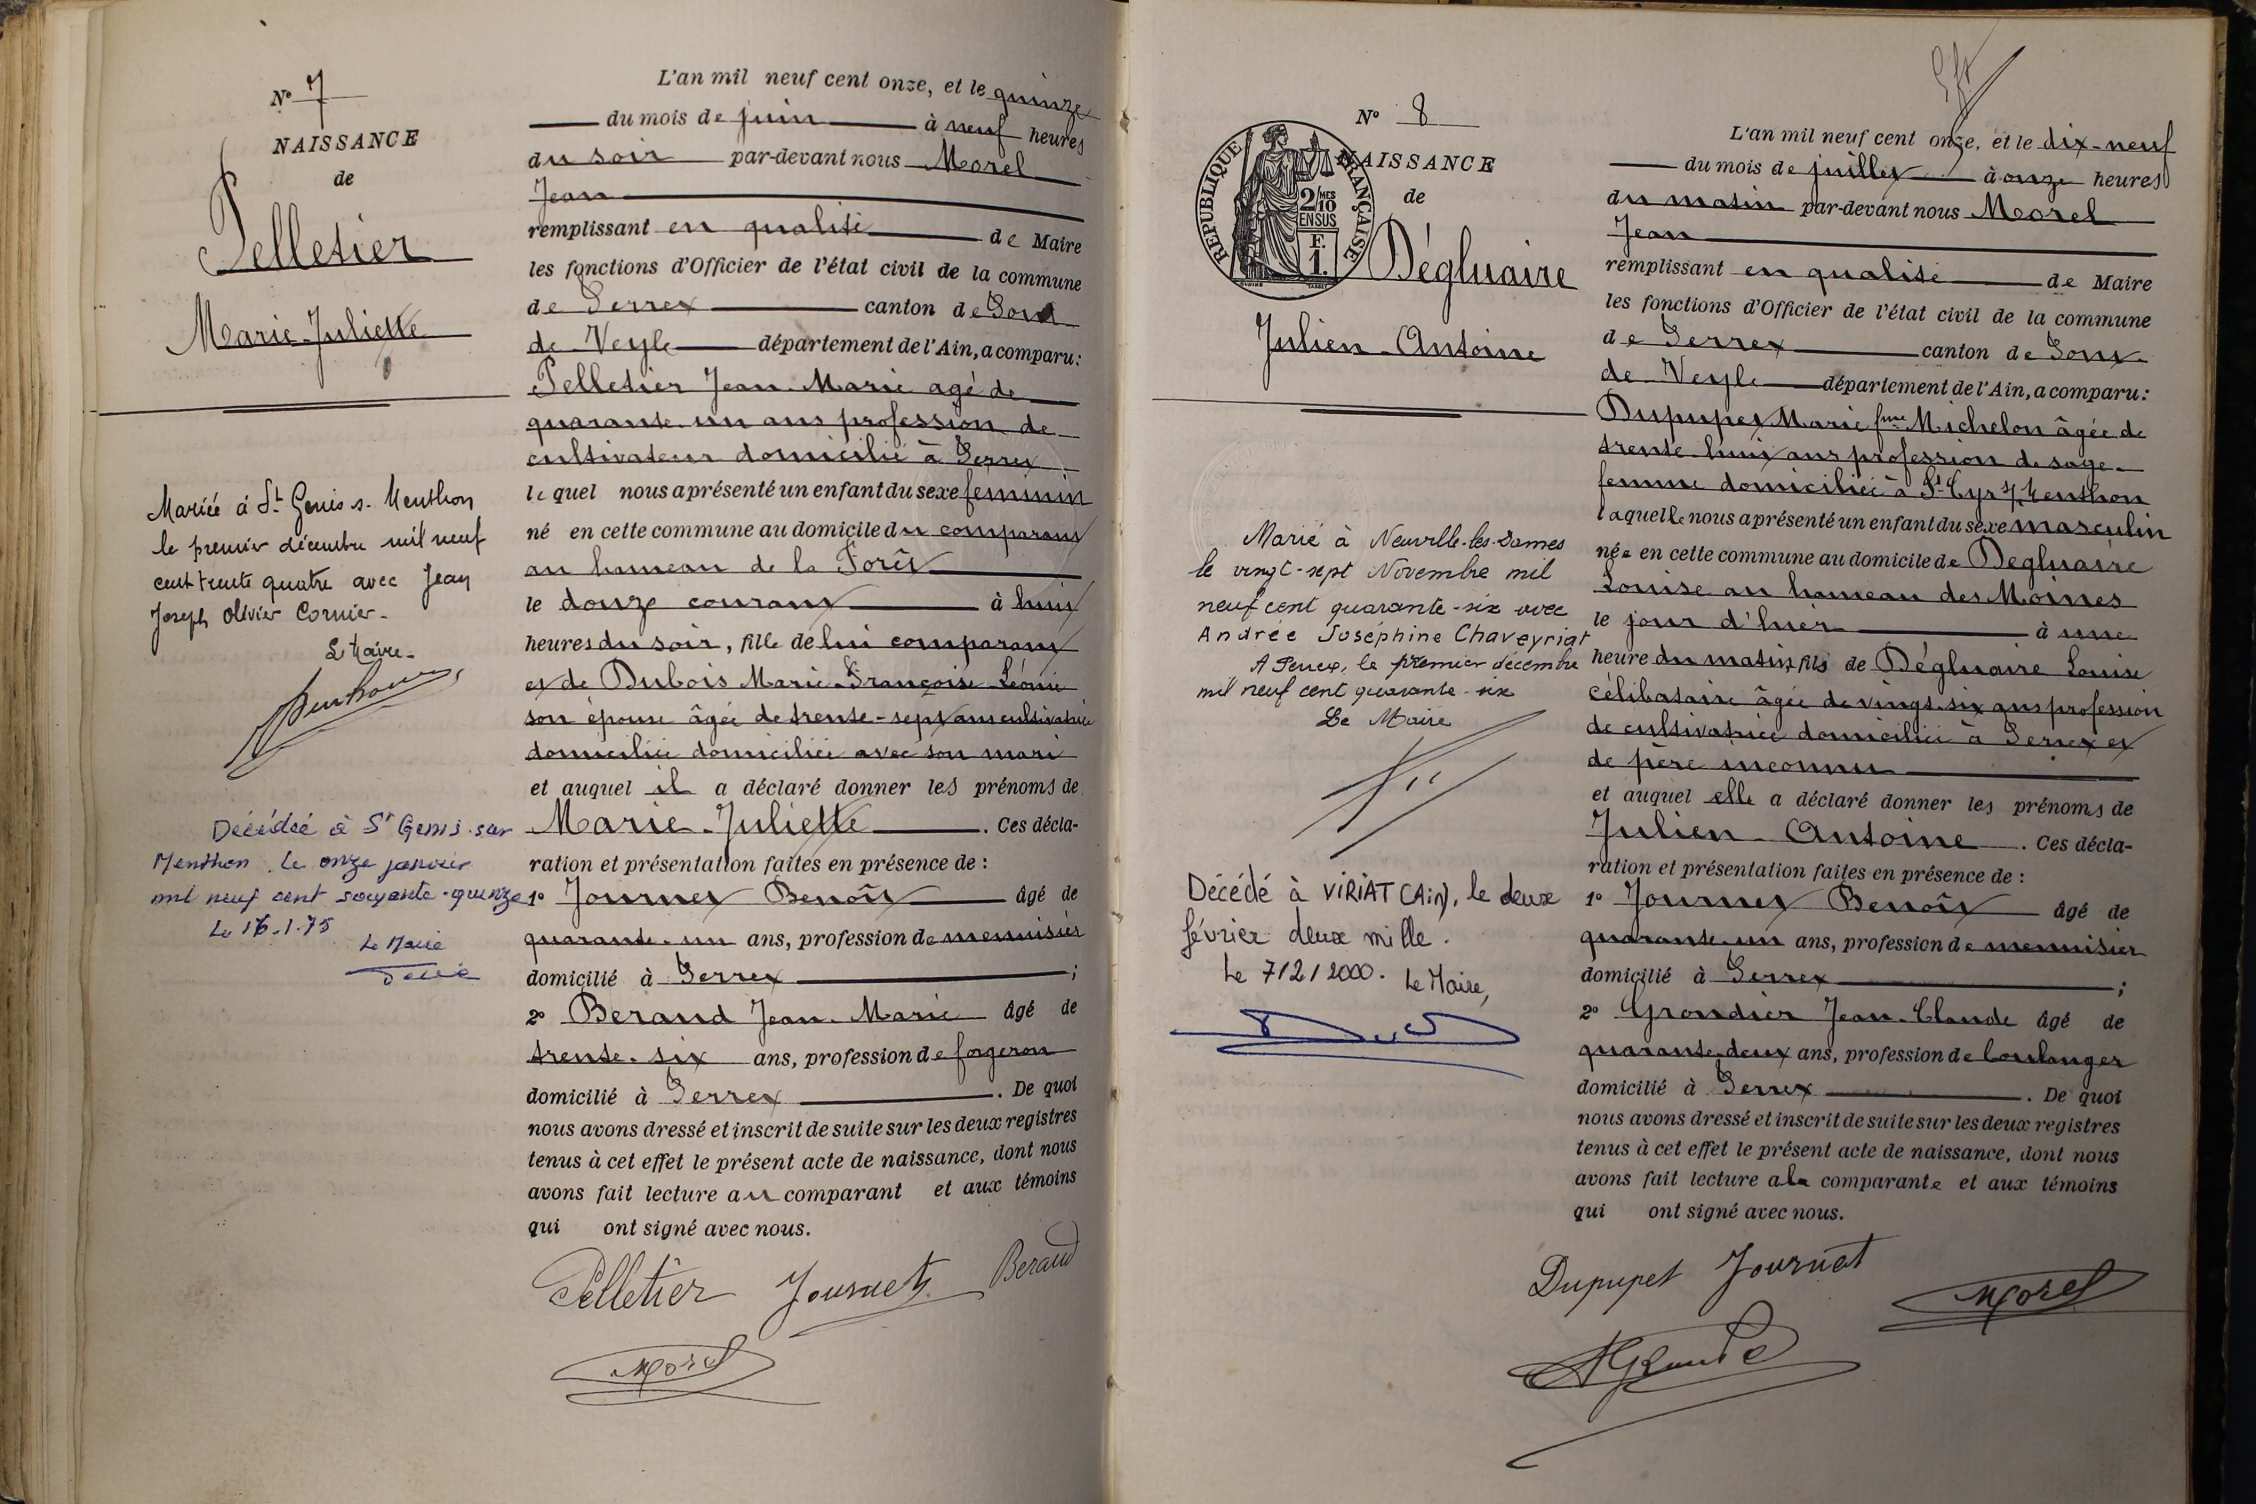 N° 7
NAISSANCE
de
Pelletier
Marie-Juliette
Mariée à St Genis s. Menthon
le premier décembre mil neuf
cent trente quatre avec Jean
Joseph Olivier Cornier.
Le Maire
Décédée à St Genis-sur
Menthon, le onze janvier
mil neuf cent soixante-quinze
Le 16.1.75
Le Maire
L'an mil neuf cent onze, et le quinze
du mois de juin à neuf heures
du soir par-devant nous Morel
Jean
remplissant en qualité de Maire
les fonctions d'Officier de l'état civil de la commune
de Perrex canton de Pont
de Veyle département de l'Ain, a comparu:
Pelletier Jean-Marie agé de
quarante-un ans profession de
cultivateur domicilié à Perrex
lequel nous a présenté un enfant du sexe feminin
né en cette commune au domicile du comparant
au hameau de la Forêt
le douze courant à huit
heures du soir, fille de lui comparant
et de Dubois Marie-Françoise Léonie
son épouse âgée de trente-sept ans cultivatrice
domiciliée domiciliée avec son mari
et auquel il a déclaré donner les prénoms de
Marie-Juliette. Ces décla-
ration et présentation faites en présence de :
1° Journet Benoît âgé de
quarante-un ans, profession de menuisier
domicilié à Perrex ;
2° Beraud Jean-Marie âgé de
trente-six ans, profession de forgeron
domicilié à Perrex. De quoi
nous avons dressé et inscrit de suite sur les deux registres
tenus à cet effet le présent acte de naissance, dont nous
avons fait lecture au comparant et aux témoins
qui ont signé avec nous.
Pelletier Journet Beraud
Morel
N° 8
NAISSANCE
de
RÉPUBLIQUE FRANÇAISE
2/MES
10
EN SUS
F.
1.
Dégluaire
Julien-Antoine
Marié à Neuville-les-Dames
le vingt-sept Novembre mil
neuf cent quarante-six avec
Andrée Joséphine Chaveyriat
A Perrex, le premier décembre
mil neuf cent quarante-six
Le Maire
Décédé à VIRIAT (Ain), le deux
février deux mille.
Le 7/2/2000. Le Maire,
L'an mil neuf cent onze, et le dix-neuf
du mois de juillet à onze heures
du matin par-devant nous Morel
Jean
remplissant en qualité de Maire
les fonctions d'Officier de l'état civil de la commune
de Perrex canton de Pont
de Veyle département de l'Ain, a comparu:
Dupupet Marie fme Michelon âgée de
trente-huit ans profession de sage-
femme domiciliée à St Cyr s/ Menthon
laquelle nous a présenté un enfant du sexe masculin
née en cette commune au domicile de Degluaire
Louise au hameau des Moines
le jour d'hier à une
heure du matin, fils de Dégluaire Louise
célibataire âgée de vingt-six ans profession
de cultivatrice domiciliée à Perrex et
de père inconnu
et auquel elle a déclaré donner les prénoms de
Julien-Antoine. Ces décla-
ration et présentation faites en présence de :
1° Journet Benoît âgé de
quarante-un ans, profession de menuisier
domicilié à Perrex ;
2° Grondier Jean-Claude âgé de
quarante-deux ans, profession de boulanger
domicilié à Perrex. De quoi
nous avons dressé et inscrit de suite sur les deux registres
tenus à cet effet le présent acte de naissance, dont nous
avons fait lecture a la comparante et aux témoins
qui ont signé avec nous.
Dupupet Journet
Morel